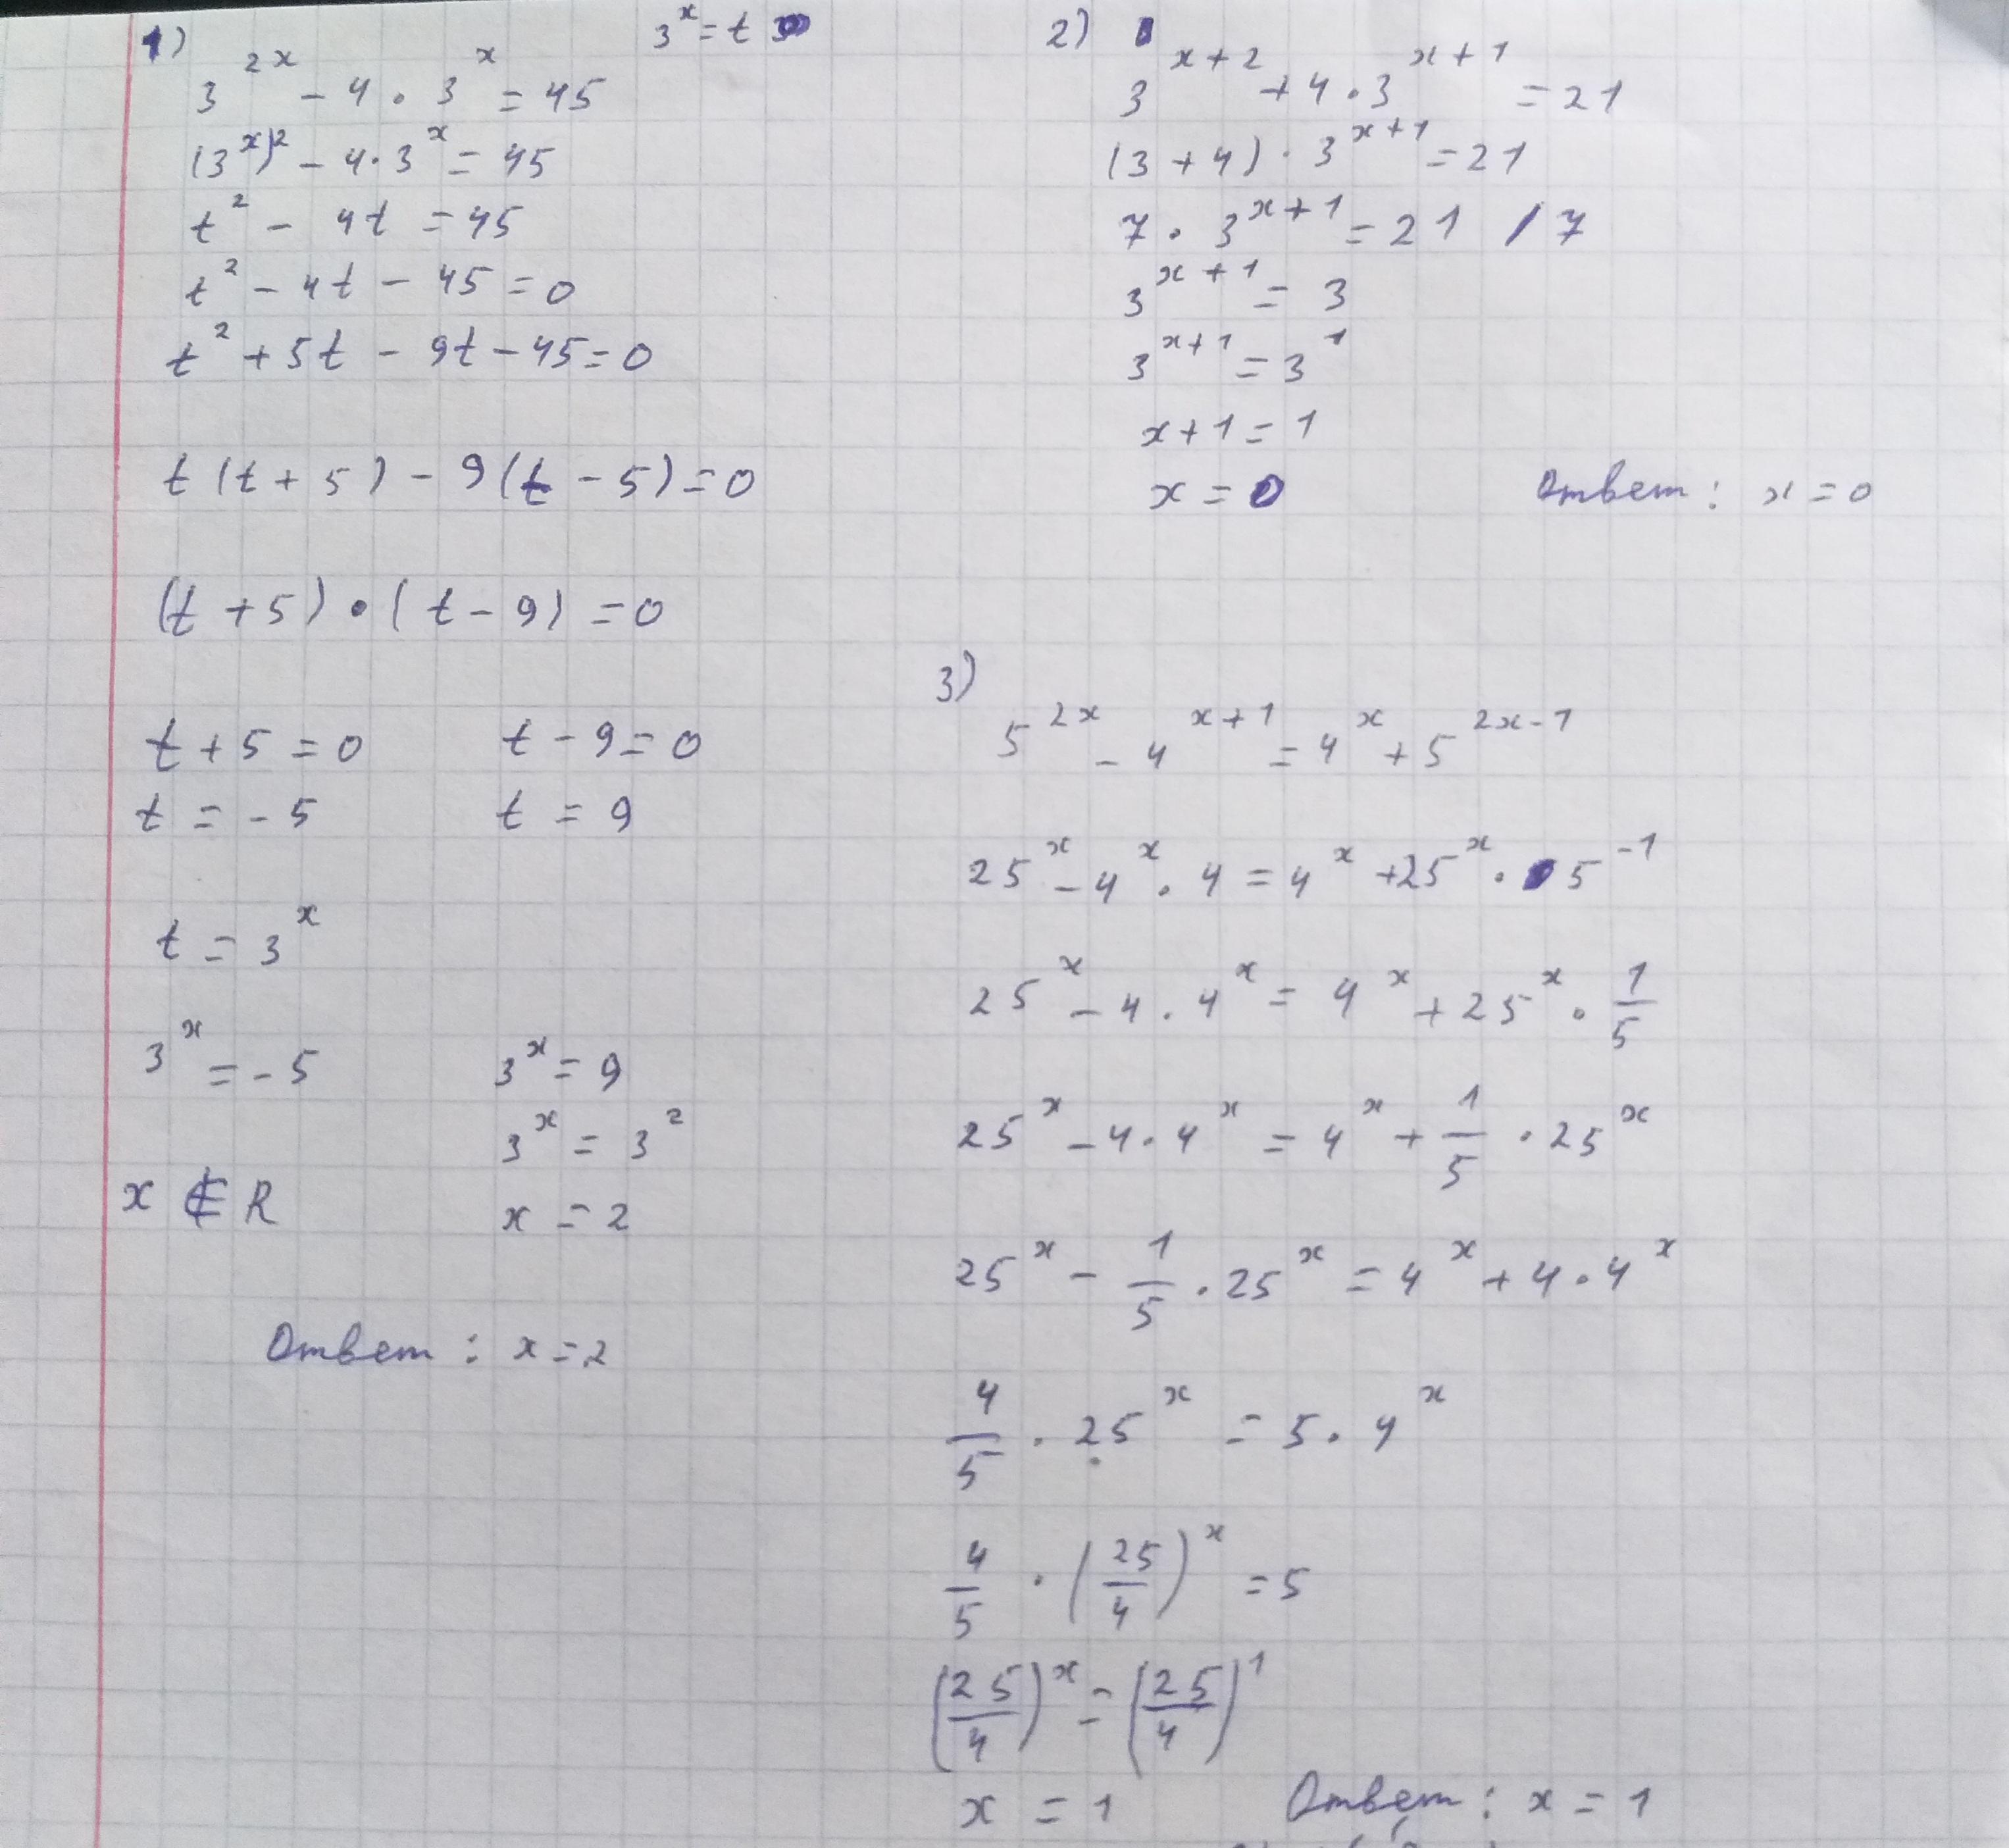 1) 3^x = t
3^{2x} - 4 · 3^x = 45
(3^x)^2 - 4 · 3^x = 45
t^2 - 4t = 45
t^2 - 4t - 45 = 0
t^2 + 5t - 9t - 45 = 0
t (t + 5) - 9 (t - 5) = 0
(t + 5) · (t - 9) = 0
t + 5 = 0 t - 9 = 0
t = - 5 t = 9
t = 3^x
3^x = - 5 3^x = 9
3^x = 3^2
x ∉ R x = 2
Ответ : x = 2
2)
3^{x+2} + 4 · 3^{x+1} = 21
(3 + 4) · 3^{x+1} = 21
7 · 3^{x+1} = 21 / 7
3^{x+1} = 3
3^{x+1} = 3^1
x + 1 = 1
x = 0 Ответ : x = 0
3)
5^{2x} - 4^{x+1} = 4^x + 5^{2x-1}
25^x - 4^x · 4 = 4^x + 25^x · 5^{-1}
25^x - 4 · 4^x = 4^x + 25^x · 1/5
25^x - 4 · 4^x = 4^x + 1/5 · 25^x
25^x - 1/5 · 25^x = 4^x + 4 · 4^x
4/5 · 25^x = 5 · 4^x
4/5 · (25/4)^x = 5
(25/4)^x = (25/4)^1
x = 1 Ответ : x = 1